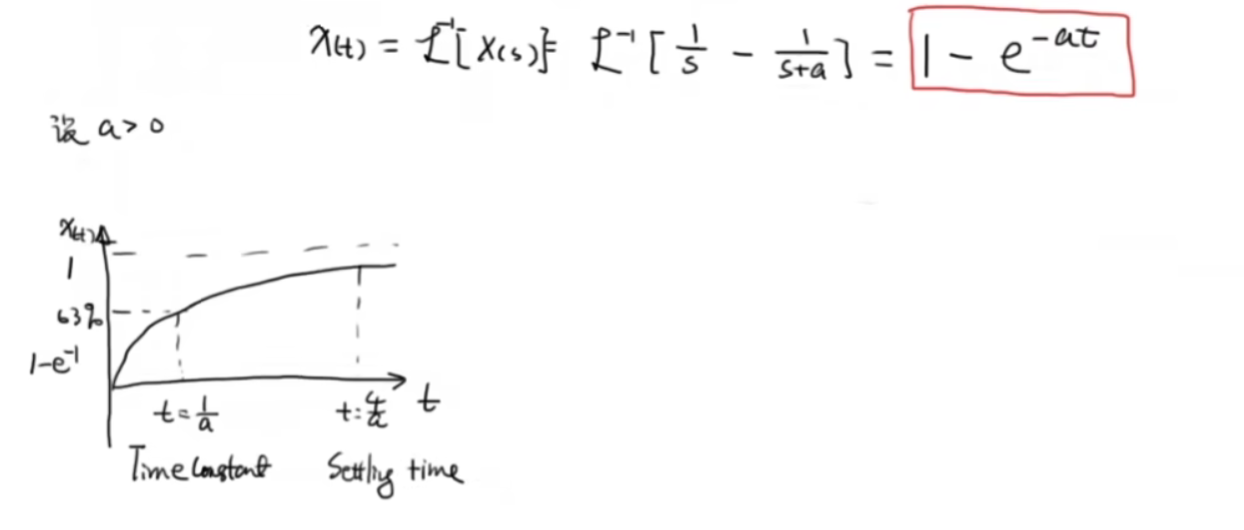 x(t) = ℒ⁻¹[X(s)] = ℒ⁻¹[1/s - 1/(s+a)] = 1 - e^(-at)
设 a > 0
x(t)
1
63%
1-e⁻¹
t = 1/a
t = 4/a
t
Time Constant
Settling time